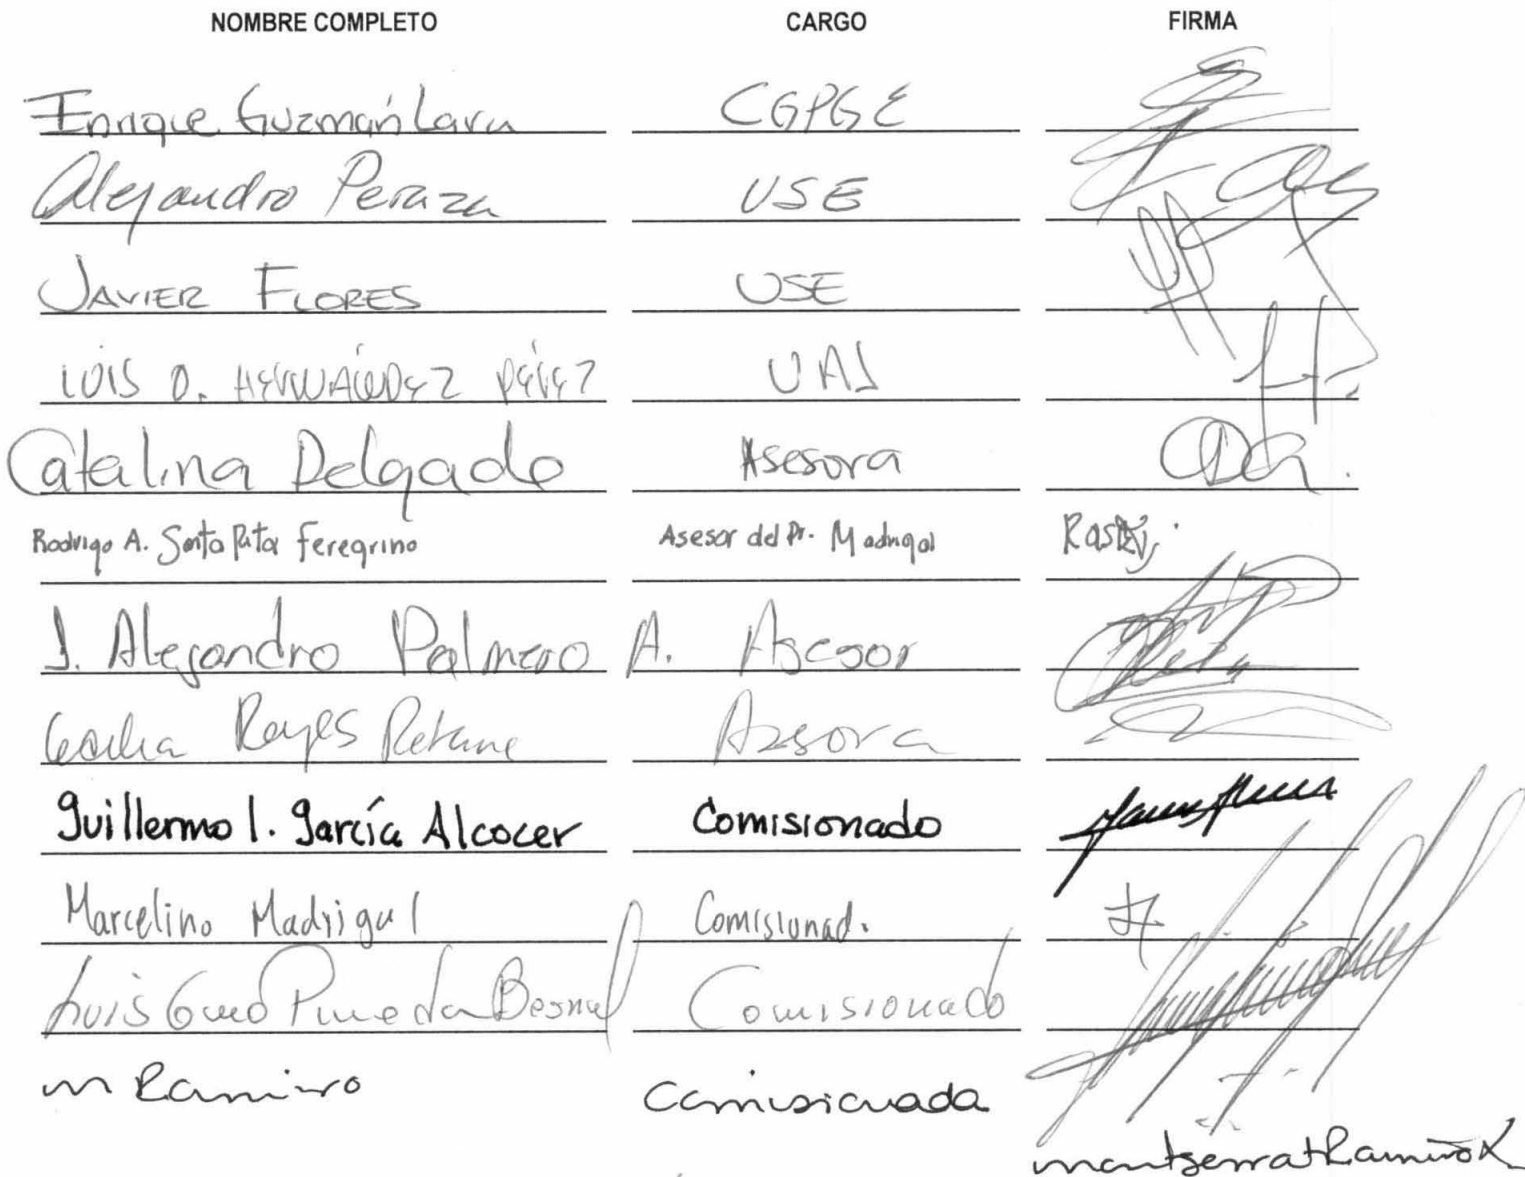 NOMBRE COMPLETO CARGO FIRMA
Enrique Guzmán Lara CGPGE
Alejandro Peraza USE
JAVIER FLORES USE
LUIS O. HERNÁNDEZ PÉREZ UAJ
Catalina Delgado Asesora
Rodrigo A. Santa Rita Feregrino Asesor del Dr. Madrigal
J. Alejandro Palmero A. Asesor
Cecilia Reyes Retana Asesora
Guillermo I. García Alcocer Comisionado
Marcelino Madrigal Comisionad.
Luis Pineda Bernal Comisionado
m Ramiro Comisionada
montserrat Ramiro